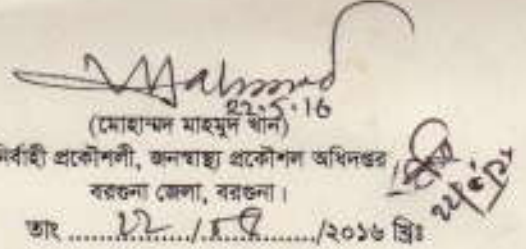 Mahmud
22.5.16
(মোহাম্মদ মাহমুদ খান)
নির্বাহী প্রকৌশলী, জনস্বাস্থ্য প্রকৌশল অধিদপ্তর
বরগুনা জেলা, বরগুনা।
তাং ....... 22 ....../.......... /২০১৬ খ্রিঃ